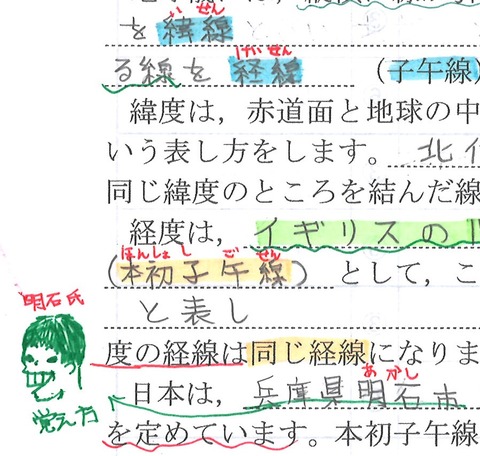 いせん
を緯線と
けいせん
る線を 経線 (子午線)
緯度は，赤道面と地球の中
いう表し方をします。北
同じ緯度のところを結んだ線
経度は，イギリスの
ほんしょしごせん
(本初子午線) として，こ
と表し
明石氏
度の経線は同じ経線になりま
あかし
日本は，兵庫県明石市
覚え方
を定めています。本初子午線